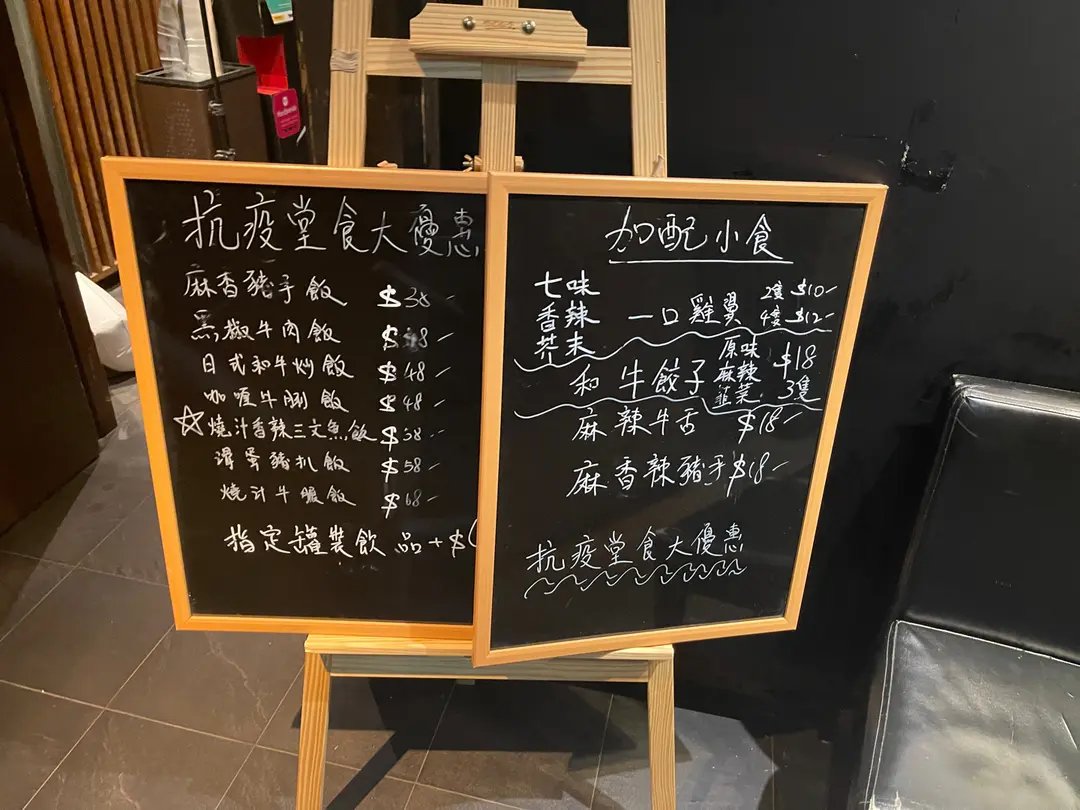 抗疫堂食大優惠
麻香豬手飯 $38-
黑椒牛肉飯
日式和牛炒飯 $48-
咖喱牛脷飯 $48-
☆燒汁香辣三文魚飯 $58-
滑蛋豬扒飯 $58-
燒汁牛脷飯 $68-
指定罐裝飲品+$
加配小食
七味
香辣
芥末
一口雞翼
2隻 $10-
4隻 $12-
和牛餃子
原味
麻辣
韮菜
$18
3隻
麻辣牛舌 $18-
麻香辣豬手 $18-
抗疫堂食大優惠